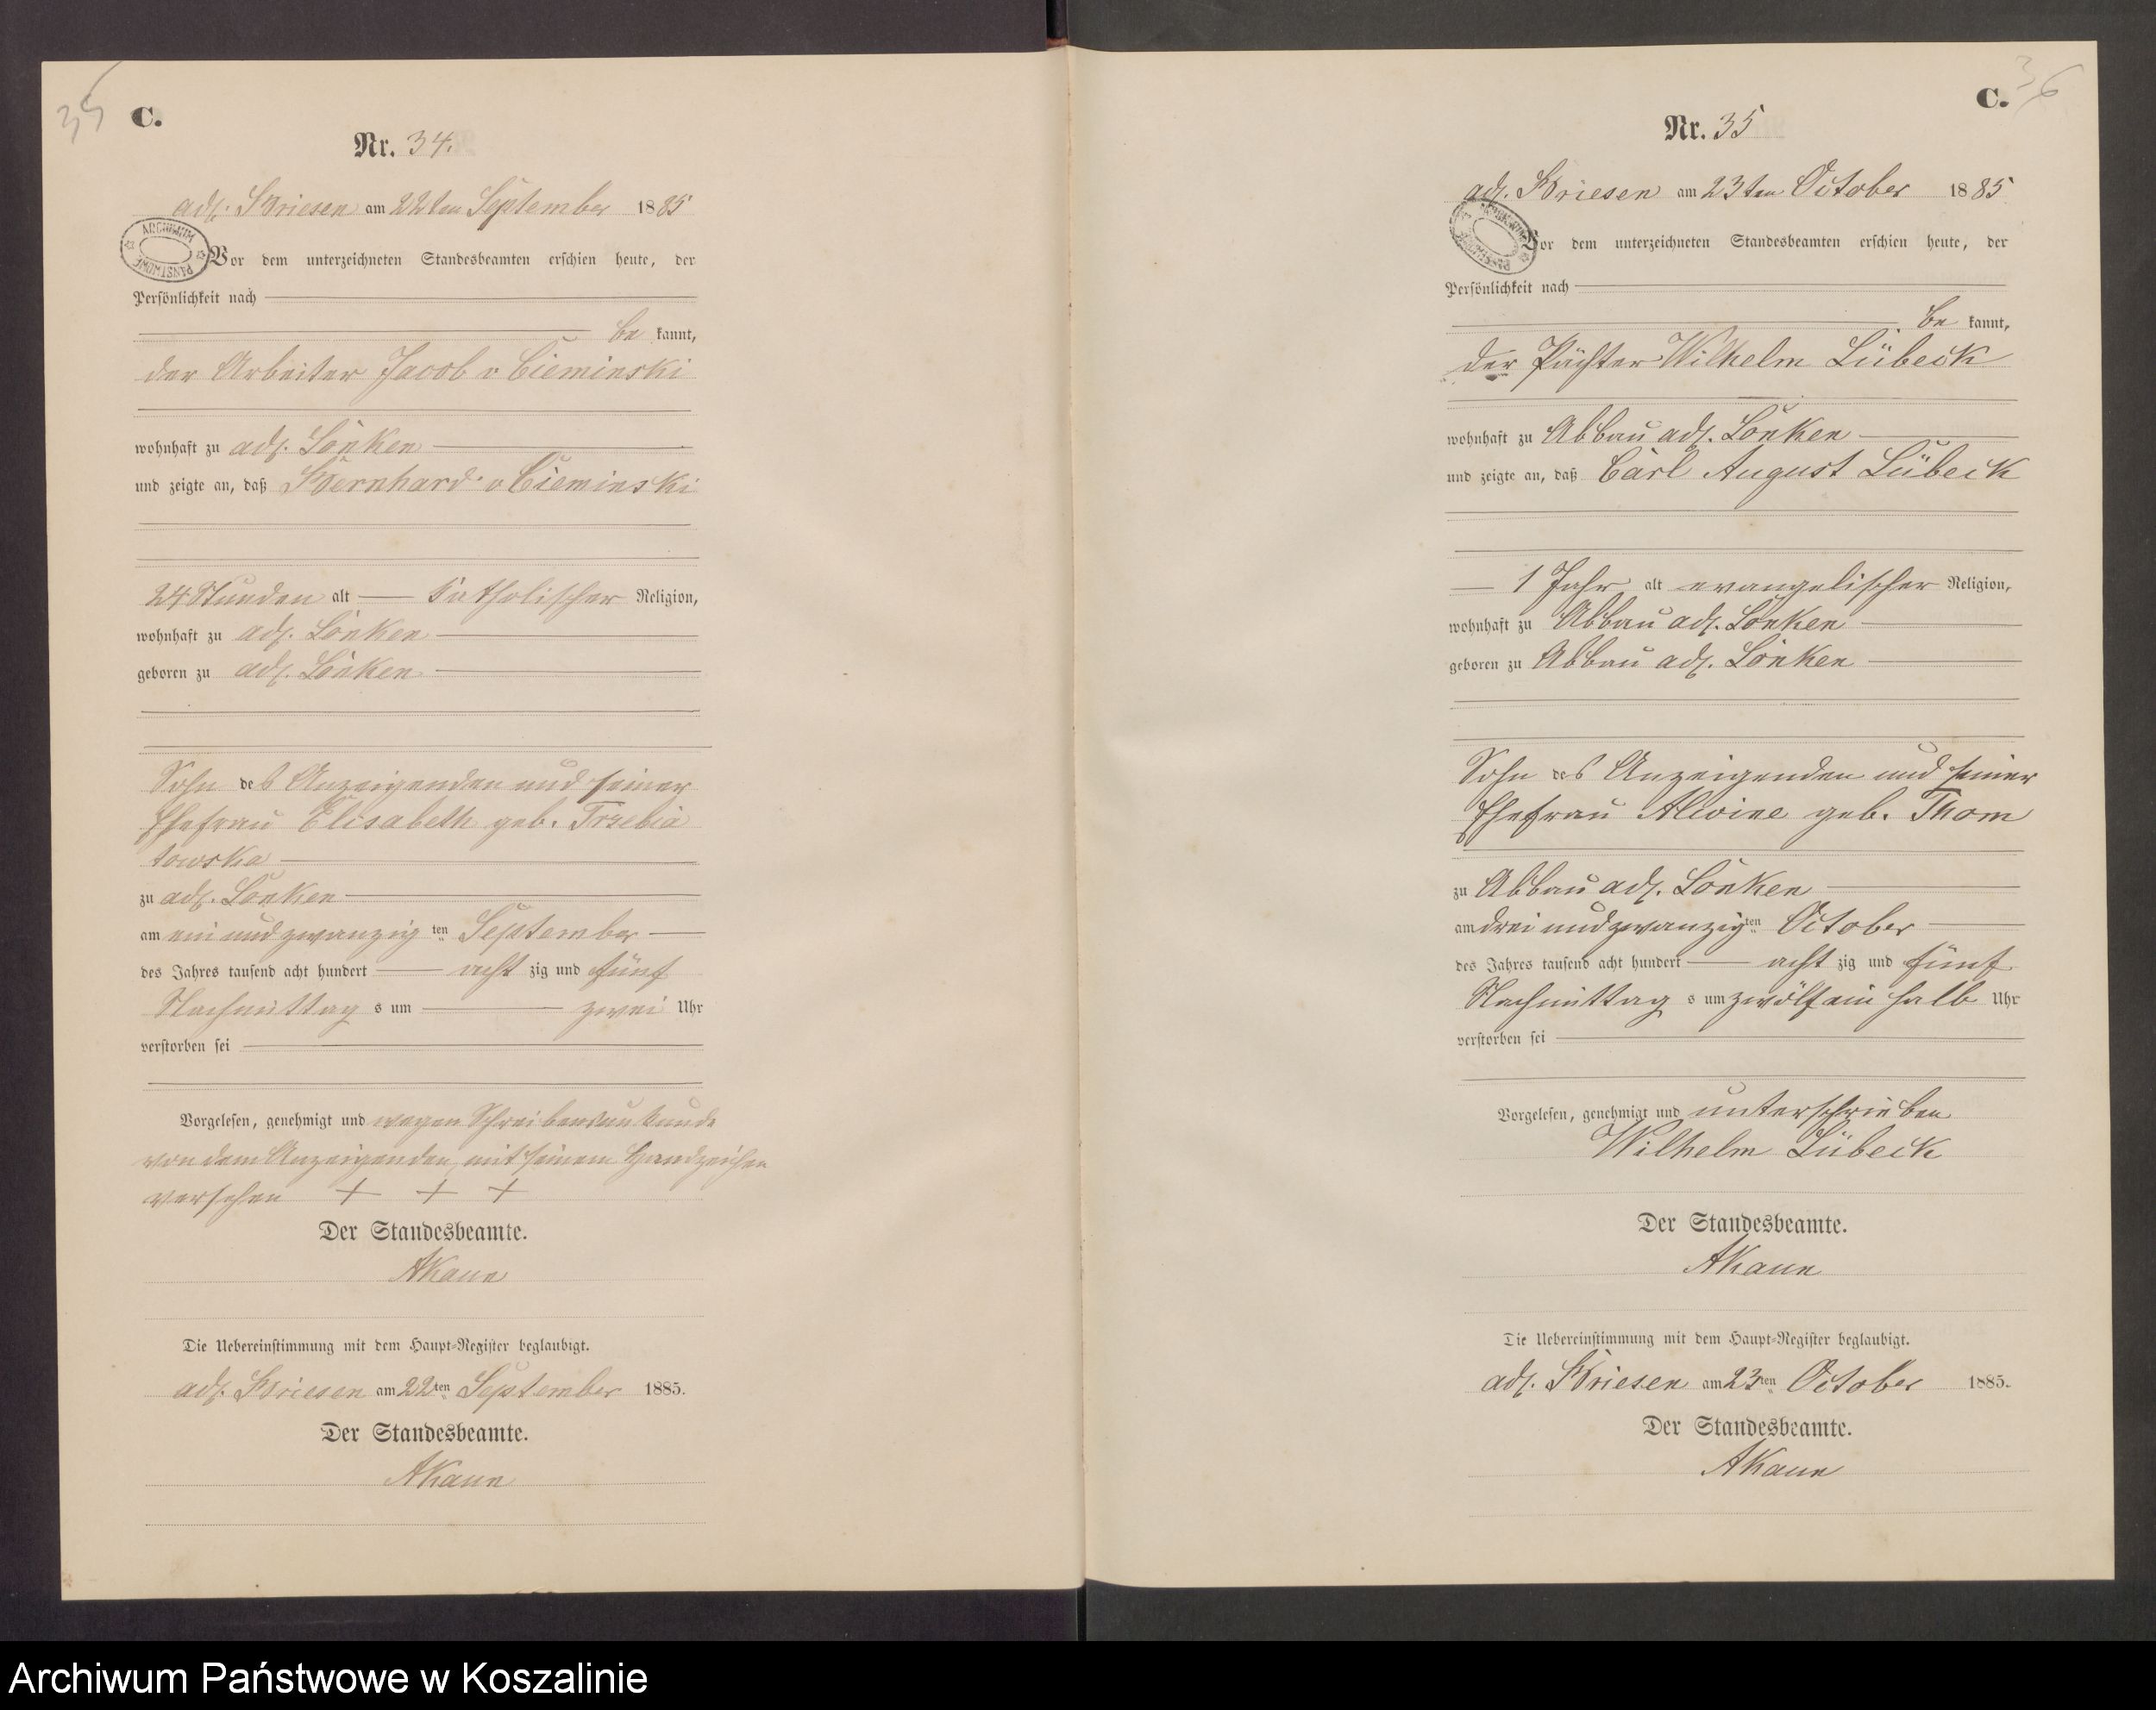 35
C.
Nr. 34.
adl. Briesen am 22ten September 1885
ARCHIWUM PAŃSTWOWE
Vor dem unterzeichneten Standesbeamten erschien heute, der
Persönlichkeit nach
be kannt,
der Arbeiter Jacob v Cieminski
wohnhaft zu adl. Lonken
und zeigte an, daß Bernhard v Cieminski
24 Stunden alt katholischer Religion,
wohnhaft zu adl. Lonken
geboren zu adl. Lonken
Sohn des Anzeigenden und seiner
Ehefrau Elisabeth geb. Trzebia
towska
zu adl. Lonken
am ein und zwanzig ten September
des Jahres tausend acht hundert acht zig und fünf
Nachmittag s um zwei Uhr
verstorben sei
Vorgelesen, genehmigt und wegen Schreibensunkunde
von dem Anzeigenden mit seinem Handzeichen
versehen + + +
Der Standesbeamte.
AKaun
Die Uebereinstimmung mit dem Haupt-Register beglaubigt.
adl. Briesen am 22ten September 1885.
Der Standesbeamte.
AKaun
36
C.
Nr. 35
adl. Briesen am 23ten October 1885
ARCHIWUM PAŃSTWOWE
Vor dem unterzeichneten Standesbeamten erschien heute, der
Persönlichkeit nach
be kannt,
der Pächter Wilhelm Lübeck
wohnhaft zu Abbau adl. Lonken
und zeigte an, daß Carl August Lübeck
1 Jahr alt evangelischer Religion,
wohnhaft zu Abbau adl. Lonken
geboren zu Abbau adl. Lonken
Sohn des Anzeigenden und seiner
Ehefrau Alwine geb. Thom
zu Abbau adl. Lonken
am drei und zwanzig ten October
des Jahres tausend acht hundert acht zig und fünf
Nachmittag s um zwölf ein halb Uhr
verstorben sei
Vorgelesen, genehmigt und unterschrieben
Wilhelm Lübeck
Der Standesbeamte.
AKaun
Die Uebereinstimmung mit dem Haupt-Register beglaubigt.
adl. Briesen am 23ten October 1885.
Der Standesbeamte.
AKaun
Archiwum Państwowe w Koszalinie